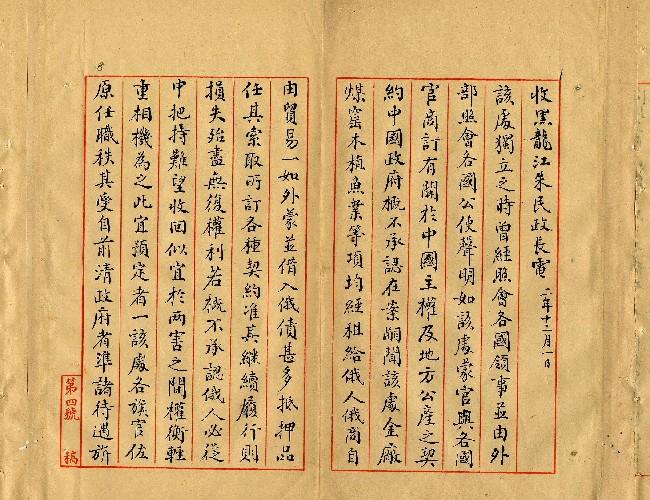 收黑龍江朱民政長電 二年十二月一日
該處獨立之時曾經照會各國領事並由外
部照會各國公使聲明如該處蒙官與各國
官商訂有關於中國主權及地方公產之契
約中國政府概不承認在案嗣聞該處金廠
煤窑木植魚業等項均經租給俄人俄商自
由貿易一如外蒙並借入俄債甚多抵押品
任其索取所訂各種契約准其継續履行則
損失殆盡無復權利若概不承認俄人必從
中把持難望收回似宜於兩害之間權衡輕
重相機為之此宜預定者一該處各旗官佐
原任職秩其受自前清政府者準諸待遇所
第四號 稿